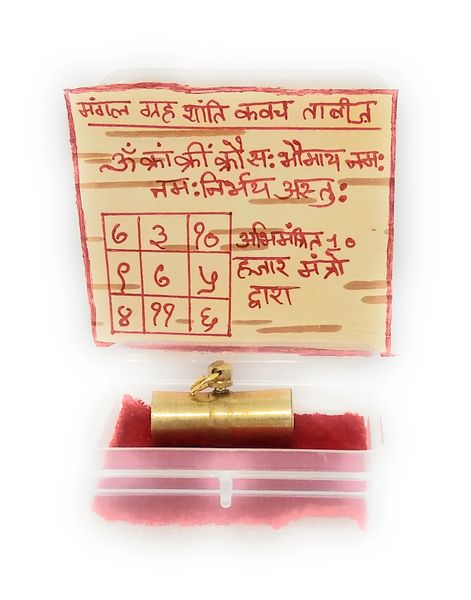 मंगल ग्रह शांति कवच ताबीज़
ॐ क्रां क्रीं क्रौ स: भौमाय नम:
नम: निर्भय अस्तु:
७ ३ १०
९ ७ ५
४ ११ ६
अभिमंत्रित १०
हजार मंत्रो
द्वारा